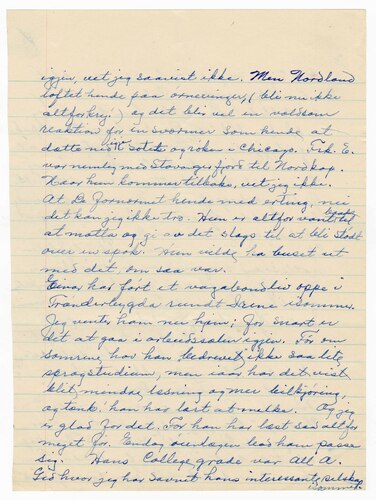 igjen, vet jeg saavist ikke. Men Nordland
løftet hende paa ørnevinger, (bli nu ikke
altfor kry!) og det blir vel en voldsom
reaktion for en sværmer som hende at
dette ned til sotet og røken i Chicago. Frk. E.
var nemlig med Stavangerfjord til Nordkap.
Naar hun kommer tilbake, vet jeg ikke.
At De fornærmet hende med erting, nei
det kan jeg ikke tro. Hun er altfor vant til baade
at motta og gi av det slags til at bli stødt
over en spøk. Hun vilde ha buset ut
med det, om saa var.
Einar har ført et vagabondliv oppe i
Trønderbygda rundt Stene isommer.
Jeg venter ham nu hjem; for snart er
det at gaa i arbeidsselen igjen. Før om
somrene har han bedrevet ikke saa lite
sprogstudium, men iaar har det vist
blit mindre læsning og mer bilkjøring,
og tænk, han har lært at melke. Og jeg
er glad for det. For han har læst saa altfor
meget før. Endog overlægen bad ham passe
sig. Hans College grade var All A.
Gid hvor jeg har savnet hans interessante selskap
isommer.